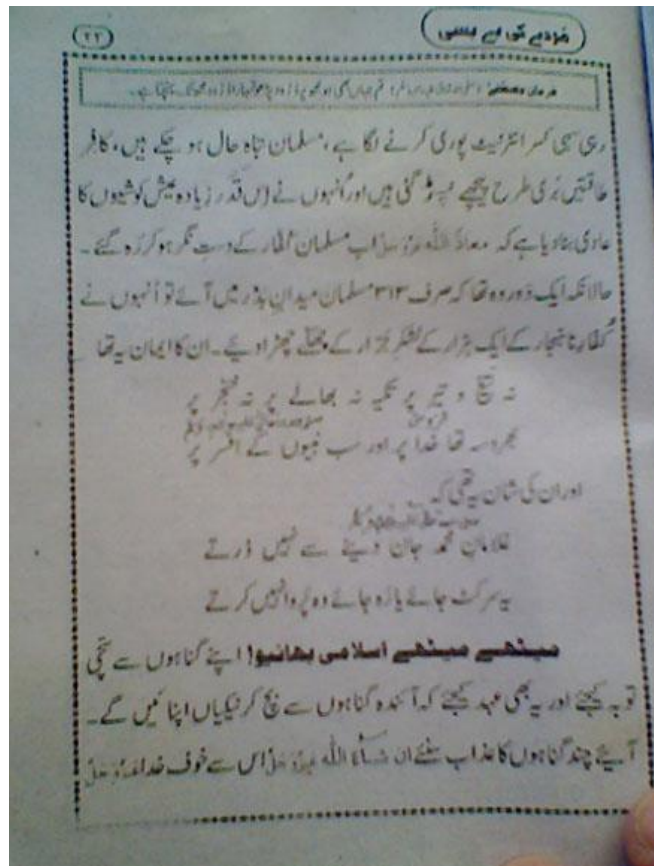 مُردے کی بے بسی
(۲۲)
فرمانِ مصطفٰے تم جہاں بھی ہو مجھ پر دُرود پڑھو تمہارا دُرود مجھ تک پہنچتا ہے۔
رہی سہی کسر انٹرنیٹ پوری کرنے لگا ہے، مسلمان تباہ حال ہو چکے ہیں، کافر
طاقتیں بُری طرح پیچھے پڑ گئی ہیں اور اُنہوں نے اِس قَدَر زیادہ عیش کوشیوں کا
عادی بنا دیا ہے کہ معاذَ اللہ عَزَّوَجَلَّ اب مسلمان کُفّار کے دست نگر ہو کر رَہ گئے۔
حالانکہ ایک دَور وہ تھا کہ صرف ۳۱۳ مسلمان میدانِ بَدْر میں آئے تو اُنہوں نے
کُفّارِ نا ہنجار کے ایک ہزار کے لشکرِ جَرّار کے چھکّے چھڑا دیئے۔ ان کا ایمان یہ تھا
نہ تیغ و تیر پر تکیہ نہ بھالے پر نہ خنجر پر
بھروسہ تھا خدا پر اور سب نبیوں کے افسر پر
اور ان کی شان یہ تھی کہ
غلامانِ محمد جان دینے سے نہیں ڈرتے
یہ سر کٹ جائے یا رہ جائے وہ پروا نہیں کرتے
میٹھے میٹھے اسلامی بھائیو! اپنے گناہوں سے سچّی
توبہ کیجئے اور یہ بھی عہد کیجئے کہ آئندہ گناہوں سے بچ کر نیکیاں اپنائیں گے۔
آیئے چند گناہوں کا عذاب سنئے اِن شَاءَ اللہ عَزَّوَجَلَّ اس سے خوف خدا عَزَّوَجَلَّ